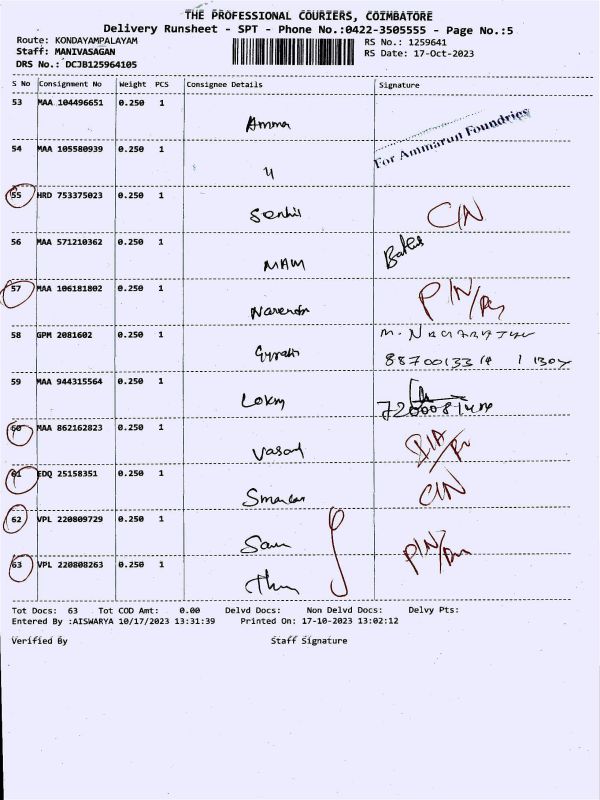 THE PROFESSIONAL COURIERS, COIMBATORE
Delivery Runsheet - SPT - Phone No.:0422-3505555 - Page No.:5
Route: KONDAYAMPALAYAM
RS No.: 1259641
Staff: MANIVASAGAN
RS Date: 17-Oct-2023
DRS No.: DCJB125964105
S No Consignment No Weight PCS Consignee Details Signature
53 MAA 104496651 0.250 1
Amma
For Ammarun Foundries
54 MAA 105580939 0.250 1
55 HRD 753375023 0.250 1
Senthil C/N
56 MAA 571210362 0.250 1
MAM
57 MAA 106181802 0.250 1
Narendr PIN/
58 GPM 2081602 0.250 1
59 MAA 944315564 0.250 1
60 MAA 862162823 0.250 1
Vasant
61 EDQ 25158351 0.250 1
C/N
62 VPL 220809729 0.250 1
63 VPL 220808263 0.250 1
PIN/
Tot Docs: 63 Tot COD Amt: 0.00 Delvd Docs: Non Delvd Docs: Delvy Pts:
Entered By :AISWARYA 10/17/2023 13:31:39 Printed On: 17-10-2023 13:02:12
Verified By Staff Signature